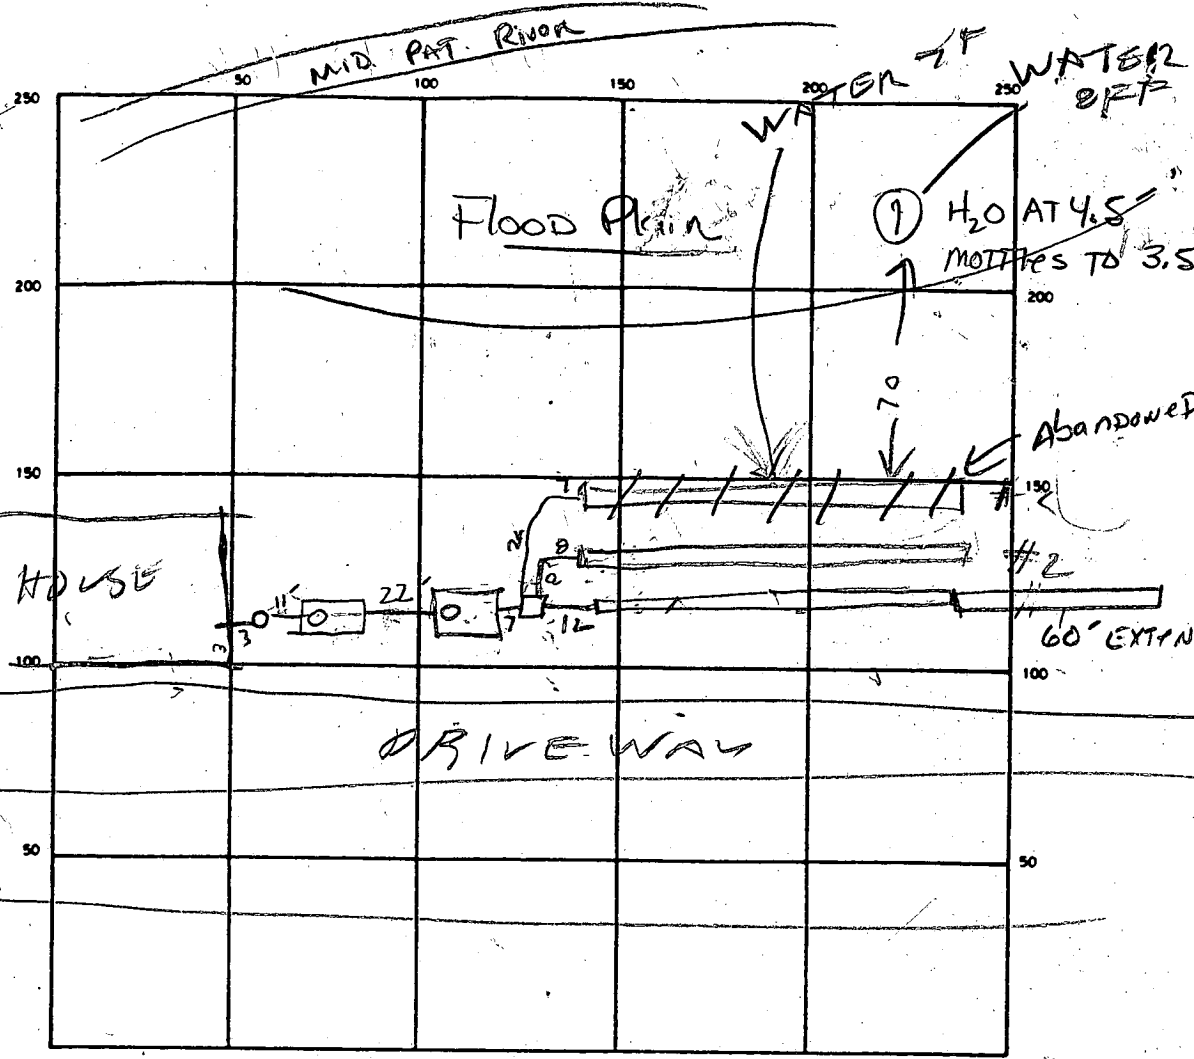 MID PAT. RIVOR
50 100 150 200 250
250
WATER
WATER
8FF
Flood Plain
1 H₂O AT 4.5
MOTTLES TO 3.5
200 200
70
AbanDoneD
150 150
24
8
#2
HOUSE
11'
22'
7
12
3
3
60' EXTN
100 100
DRIVE WAY
50 50